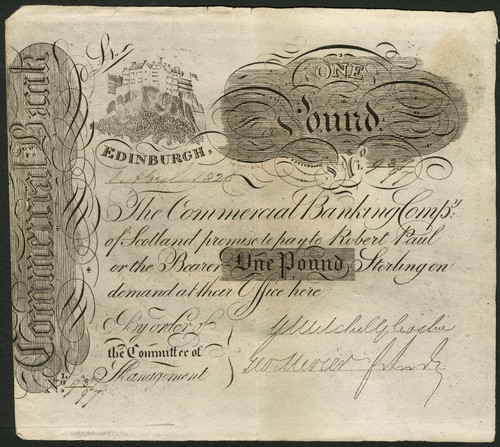 Commercial Bank
ONE
Pound.
EDINBURGH,
No 93/97
The Commercial Banking Compy:
of Scotland, promise to pay to Robert Paul
or the Bearer One Pound Sterling on
demand at their Office here
By order of
the Committee of
Management
Geo Mercer